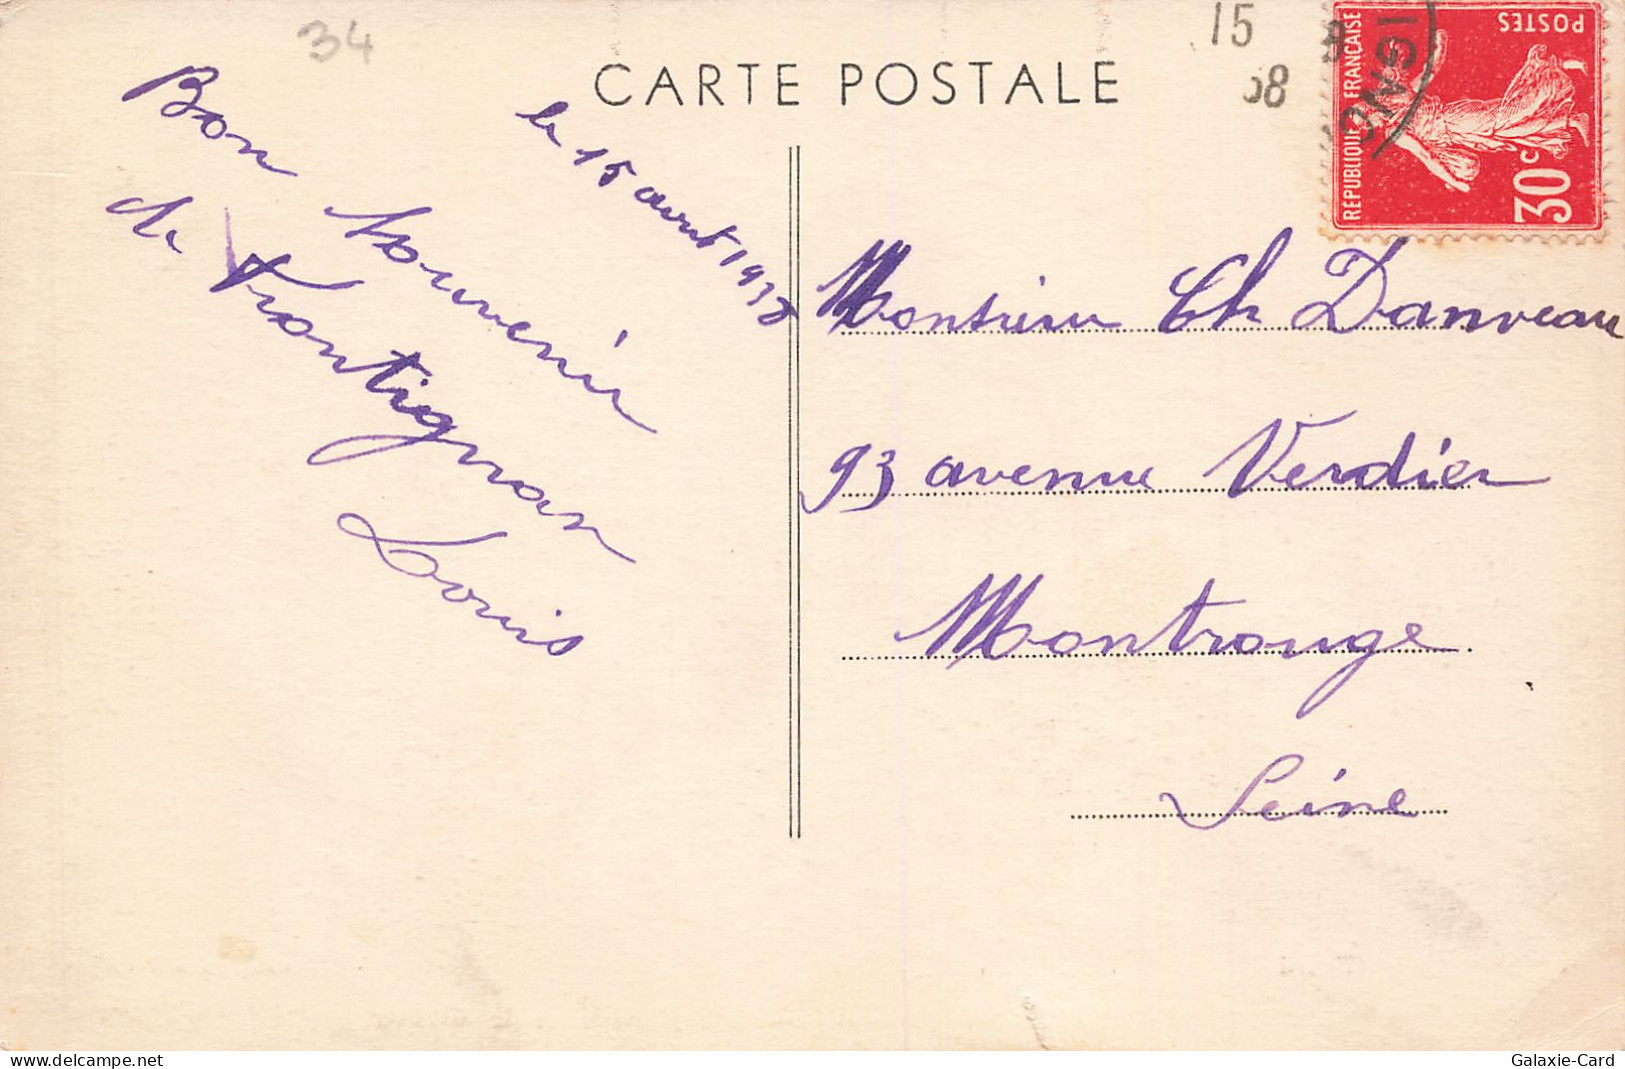 34
CARTE POSTALE
15
38
POSTES
REPUBLIQUE FRANÇAISE
30c
le 15 août 1938
Bon souvenir
de Frontignan
Louis
Monsieur Ch Danveau
93 avenue Verdier
Montrouge
Seine
www.delcampe.net
Galaxie-Card